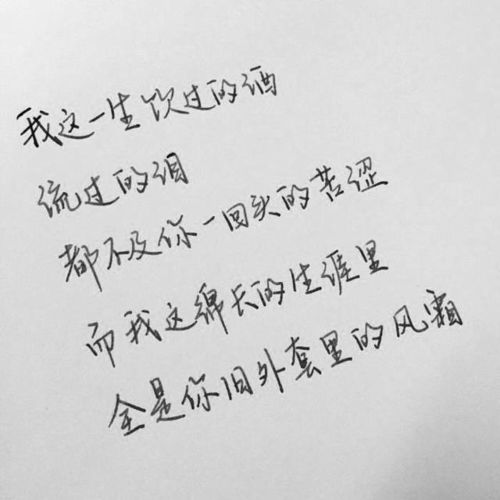 我这一生饮过的酒
流过的泪
都不及你一回头的苦涩
而我这绵长的生涯里
全是你旧外套里的风霜